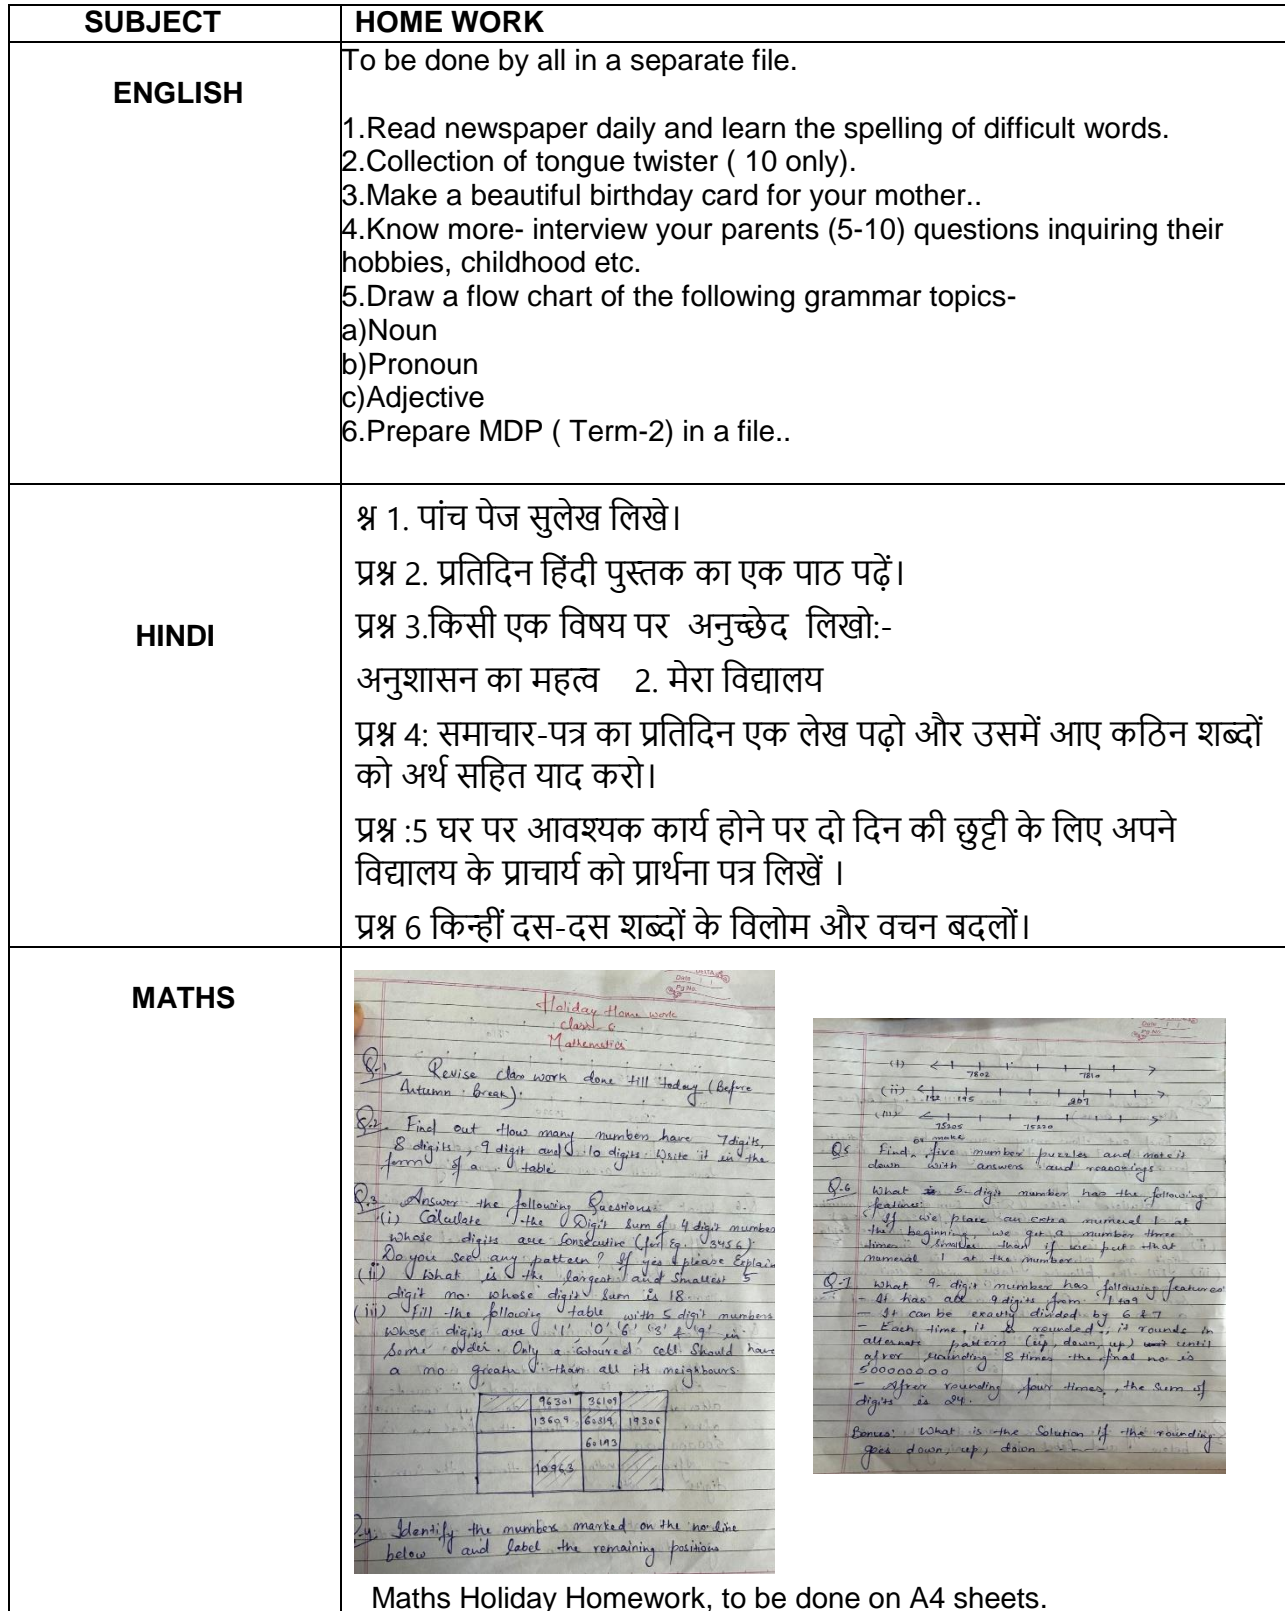 SUBJECT HOME WORK
ENGLISH
To be done by all in a separate file.
1.Read newspaper daily and learn the spelling of difficult words.
2.Collection of tongue twister ( 10 only).
3.Make a beautiful birthday card for your mother..
4.Know more- interview your parents (5-10) questions inquiring their
hobbies, childhood etc.
5.Draw a flow chart of the following grammar topics-
a)Noun
b)Pronoun
c)Adjective
6.Prepare MDP ( Term-2) in a file..
HINDI
श्न 1. पांच पेज सुलेख लिखे।
प्रश्न 2. प्रतिदिन हिंदी पुस्तक का एक पाठ पढ़ें।
प्रश्न 3.किसी एक विषय पर अनुच्छेद लिखो:-
अनुशासन का महत्व 2. मेरा विद्यालय
प्रश्न 4: समाचार-पत्र का प्रतिदिन एक लेख पढ़ो और उसमें आए कठिन शब्दों
को अर्थ सहित याद करो।
प्रश्न :5 घर पर आवश्यक कार्य होने पर दो दिन की छुट्टी के लिए अपने
विद्यालय के प्राचार्य को प्रार्थना पत्र लिखें ।
प्रश्न 6 किन्हीं दस-दस शब्दों के विलोम और वचन बदलों।
MATHS
Holiday Home work
class 6
Mathematics
Q.1 Revise class work done till today (Before
Autumn Break).
Q.2 Find out How many numbers have 7digits,
8 digits, 9 digit and 10 digits. Write it in the
form of a table
Q.3 Answer the following Questions
(i) Calculate the Digit Sum of 4 digit number
whose digits are Consecutive (for Eg. 3456).
Do you see any pattern? If yes please Explain
(ii) What is the largest and Smallest 5
digit no. whose digit sum is 18.
(iii) Fill the following table with 5 digit numbers
whose digits are '1' '0' '6' '3' & '9' in
some order. Only a coloured cell should have
a no greater than all its neighbours.
96301 36109
13609 60319 19306
60193
10963
Q.4. Identify the numbers marked on the no line
below and label the remaining positions
(i) 7802 7810
(ii) 192 195 207
(iii) 75205 75220
or make
Q5 Find five number puzzles and note it
down with answers and reasonings
Q.6 What is 5-digit number has the following
features:
If we place an extra numeral 1 at
the beginning, we get a number three
times smaller than if we put that
numeral 1 at the number.
Q.7 What 9-digit number has following features
- It has all 9digits from 1 to 9
- It can be exactly divided by 6 & 7
- Each time, it is rounded, it rounds in
alternate pattern (up, down, up) until
after rounding 8 times the final no is
500000000
- After rounding four times, the sum of
digits is 24.
Bonus: What is the Solution if the rounding
goes down, up, down
Maths Holiday Homework, to be done on A4 sheets.